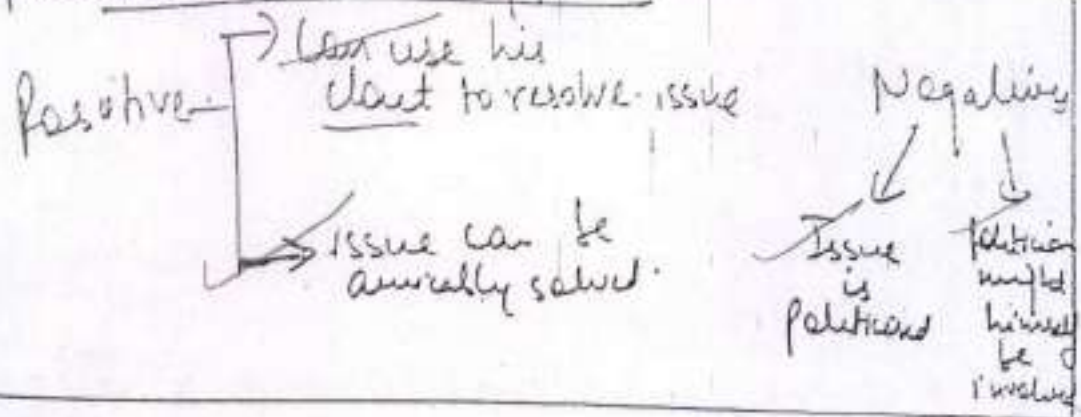 Positive
Can use his
clout to resolve issue
issue can be
amicably solved.
Negatives
Issue
is
Politicised
Politician
might
himself
be
involved